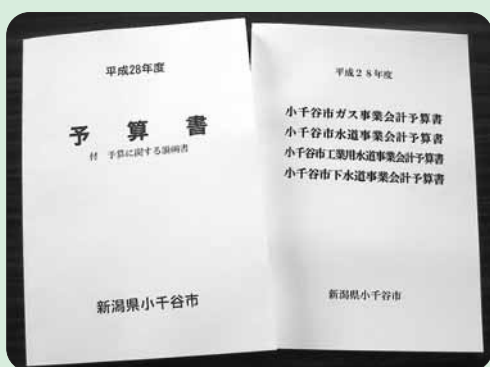 平成28年度
予算書
付 予算に関する説明書
新潟県小千谷市
平成２８年度
小千谷市ガス事業会計予算書
小千谷市水道事業会計予算書
小千谷市工業用水道事業会計予算書
小千谷市下水道事業会計予算書
新潟県小千谷市